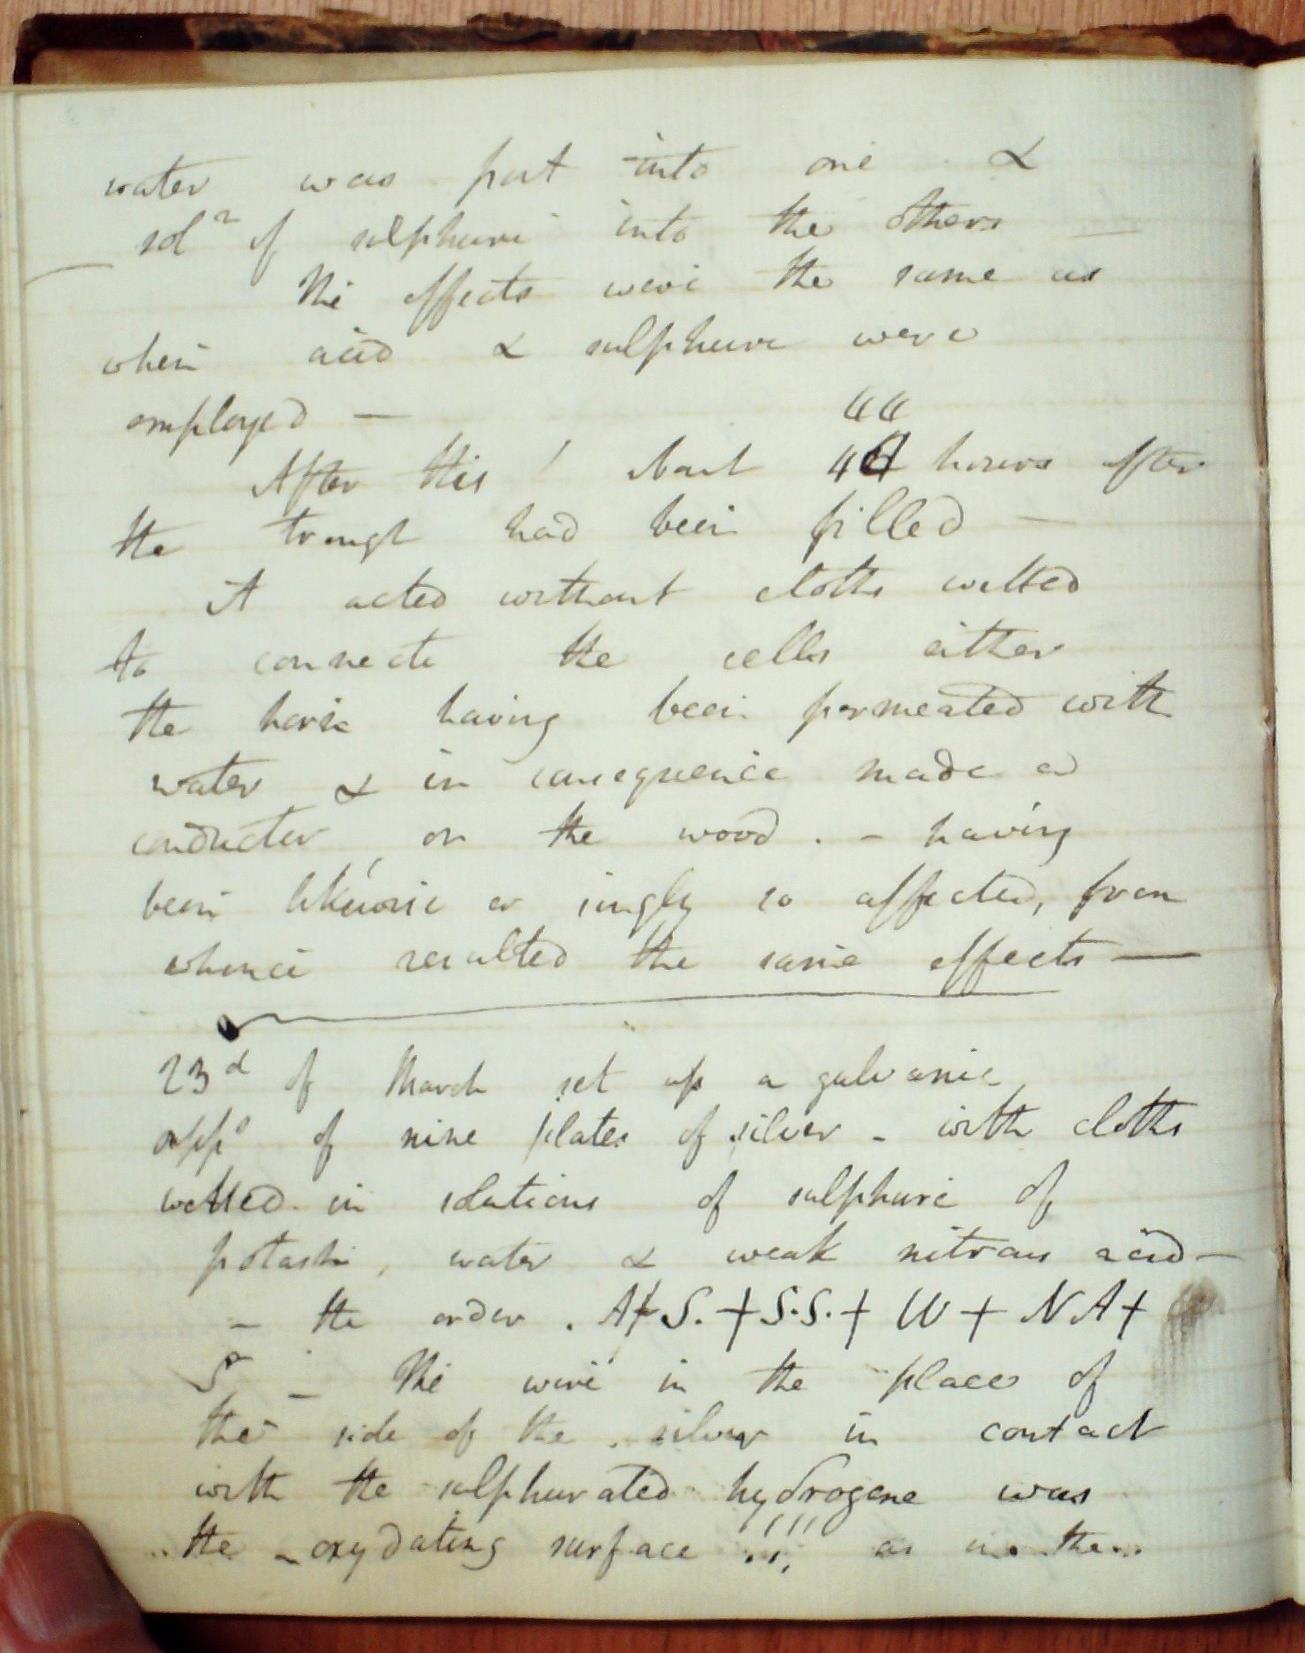 water was put into one &
sol^n of sulphure into the others —
— The effects were the same as
when acid & sulphure were
employed —
44
After this / about 44 hours after
the trough had been filled —
it acted without cloths wetted
to connecte the cells either
the horie having been permeated with
water & in consequence made a
conductor, or the wood. – having
been likewise or singly so affected, from
whence resulted the same effects —
23^d of March set up a galvanic
app^o of nine plates of silver – with cloths
wetted in solutions of sulphure of
potash, water & weak nitrous acid –
– the order . A+S.+S.S.+ W + N A +
S – The wire in the place of
the side of the silver in contact
with the sulphurated hydrogene was
the oxydating surface !!! as in the